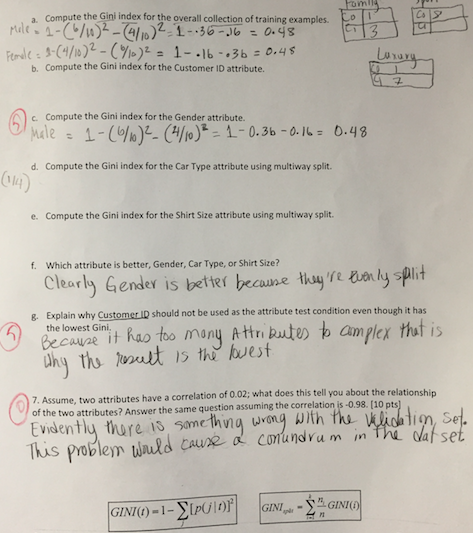 Family
Sport
C0 1
C1 3
C0 8
C1
a. Compute the Gini index for the overall collection of training examples.
Male = 1-(6/10)² - (4/10)² = 1-.36-.16 = 0.48
Female = 1-(4/10)² - (6/10)² = 1-.16-.36 = 0.48
Luxury
C0 1
C1 7
b. Compute the Gini index for the Customer ID attribute.
5
c. Compute the Gini index for the Gender attribute.
Male = 1-(6/10)² - (4/10)² = 1-0.36-0.16 = 0.48
d. Compute the Gini index for the Car Type attribute using multiway split.
(1/4)
e. Compute the Gini index for the Shirt Size attribute using multiway split.
f. Which attribute is better, Gender, Car Type, or Shirt Size?
Clearly Gender is better because they're evenly split
g. Explain why Customer ID should not be used as the attribute test condition even though it has
the lowest Gini.
5
Because it has too many Attributes to complex that is
Why the result is the lowest
0
7. Assume, two attributes have a correlation of 0.02; what does this tell you about the relationship
of the two attributes? Answer the same question assuming the correlation is -0.98. [10 pts]
Evidently there is something wrong with the validation set.
This problem would cause a conundrum in the dat set
GINI(t) = 1 - ∑[p(j | t)]²
GINI split = ∑ nᵢ/n GINI(i)